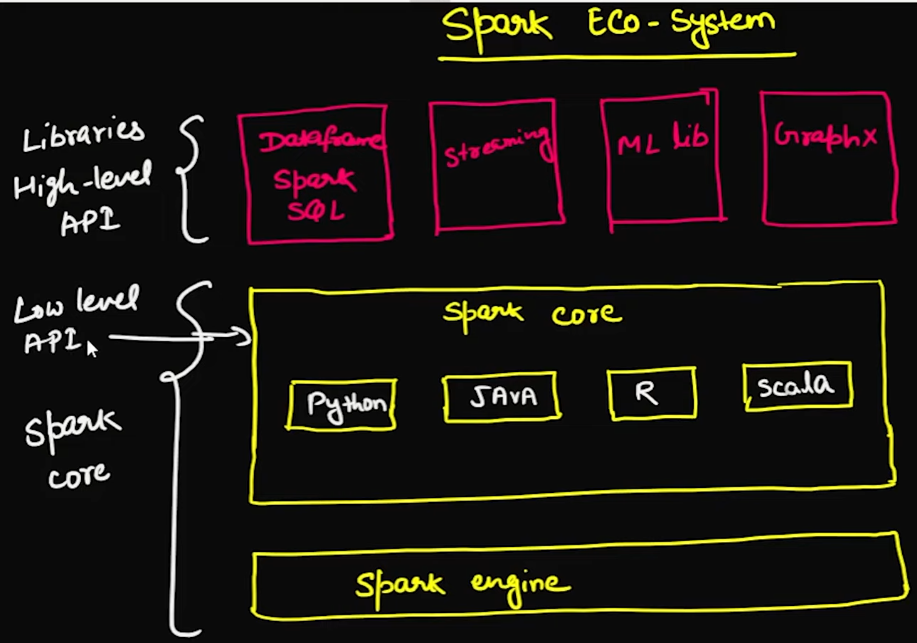 Spark ECO-System
Libraries
High-level
API
Dataframe
Spark
SQL
Streaming
ML lib
Graphx
Low level
API
Spark
core
Spark core
Python
JAVA
R
Scala
Spark engine